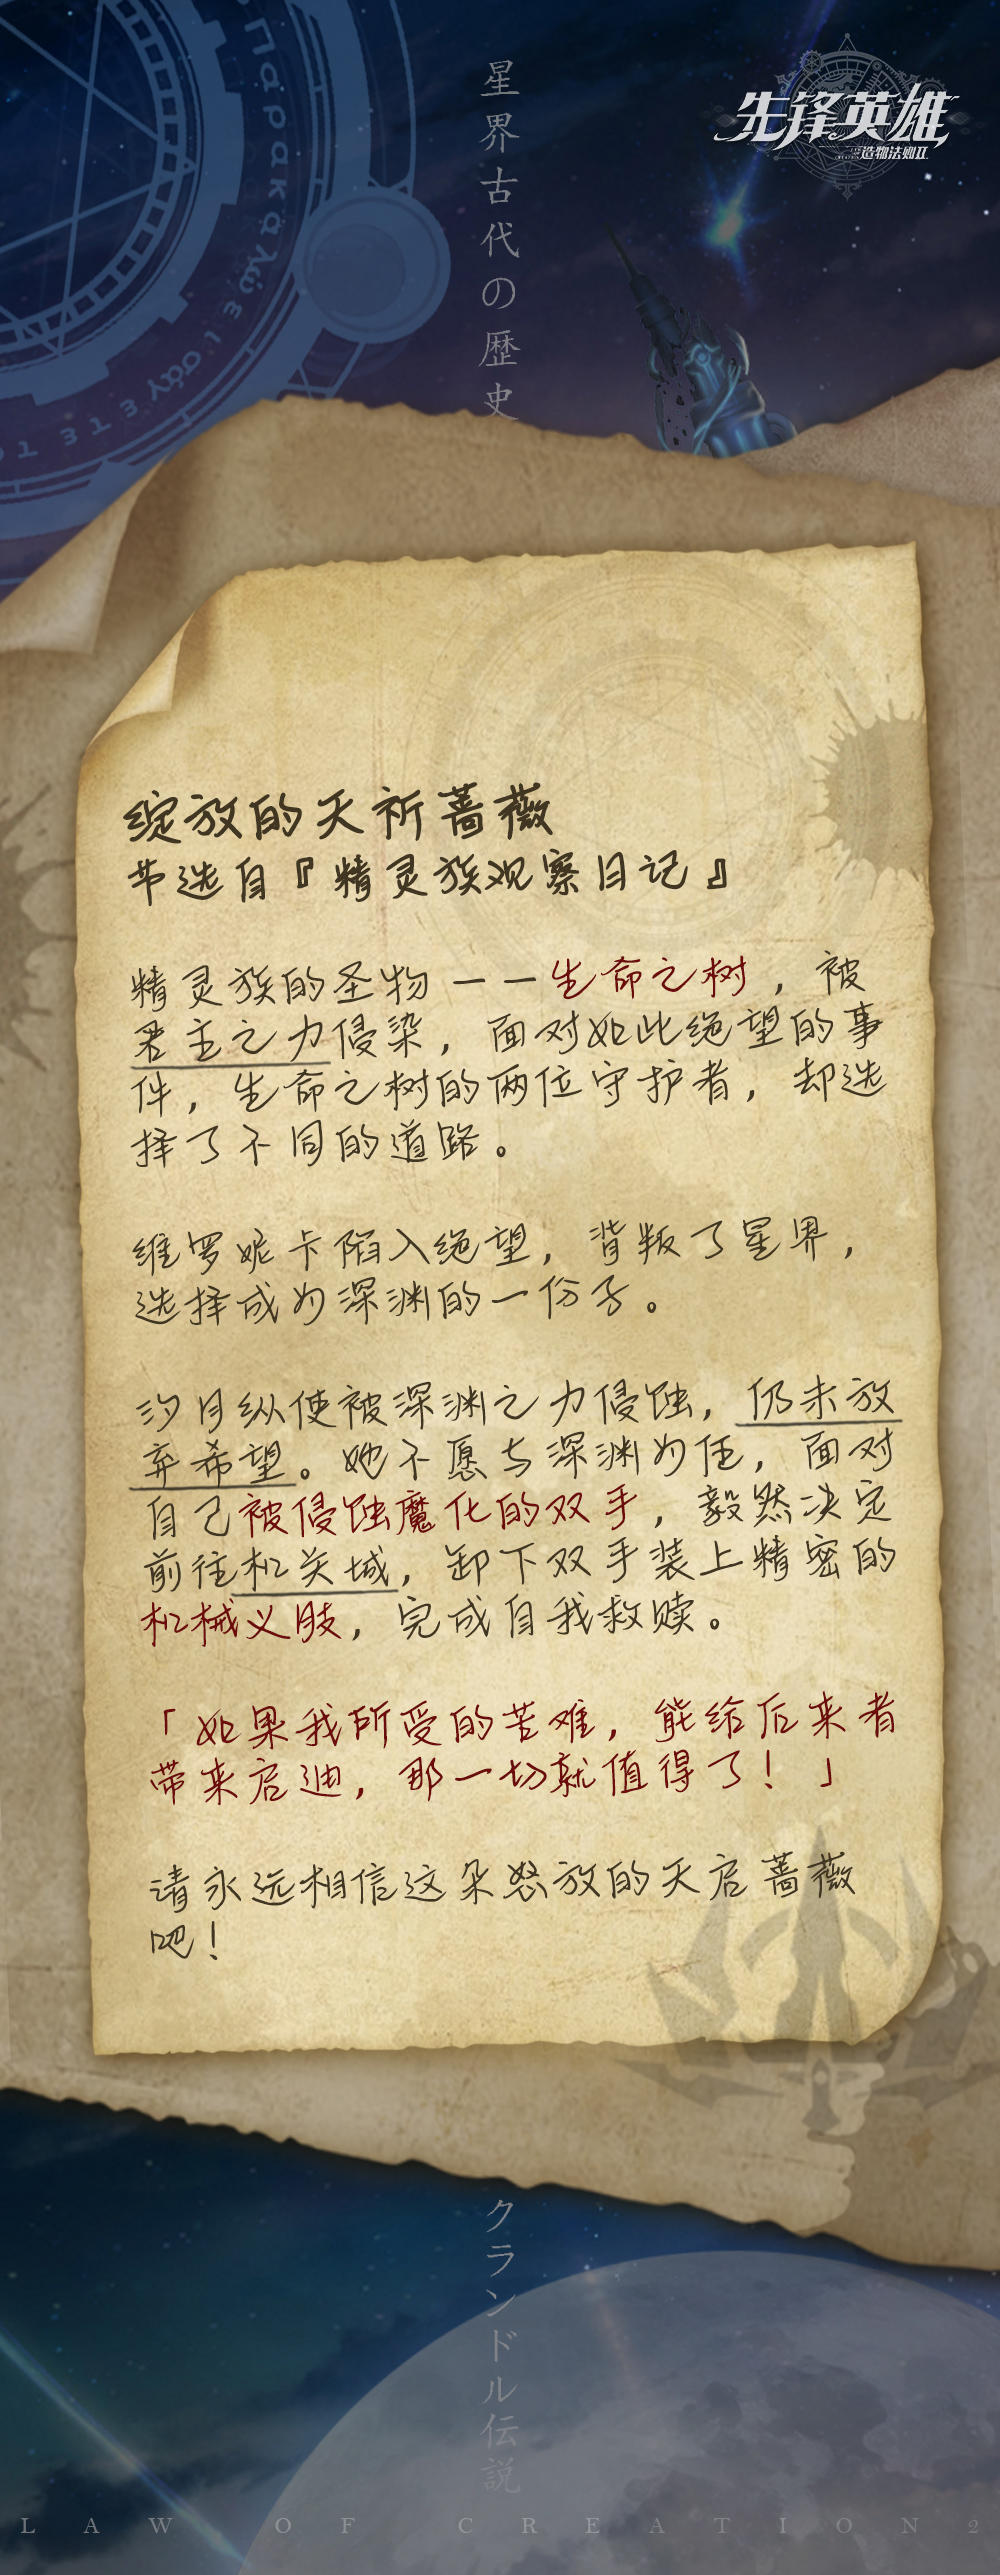 星界古代の歴史
先锋英雄
造物法则II
绽放的天祈蔷薇
节选自『精灵族观察日记』
精灵族的圣物——生命之树，被
君主之力侵染，面对如此绝望的事
件，生命之树的两位守护者，却选
择了不同的道路。
维罗妮卡陷入绝望，背叛了星界，
选择成为深渊的一份子。
汐月纵使被深渊之力侵蚀，仍未放
弃希望。她不愿与深渊为伍，面对
自己被侵蚀魔化的双手，毅然决定
前往机关城，卸下双手装上精密的
机械义肢，完成自我救赎。
「如果我所受的苦难，能给后来者
带来启迪，那一切就值得了！」
请永远相信这朵怒放的天启蔷薇
吧！
クランドル伝説
LAW OF CREATION2